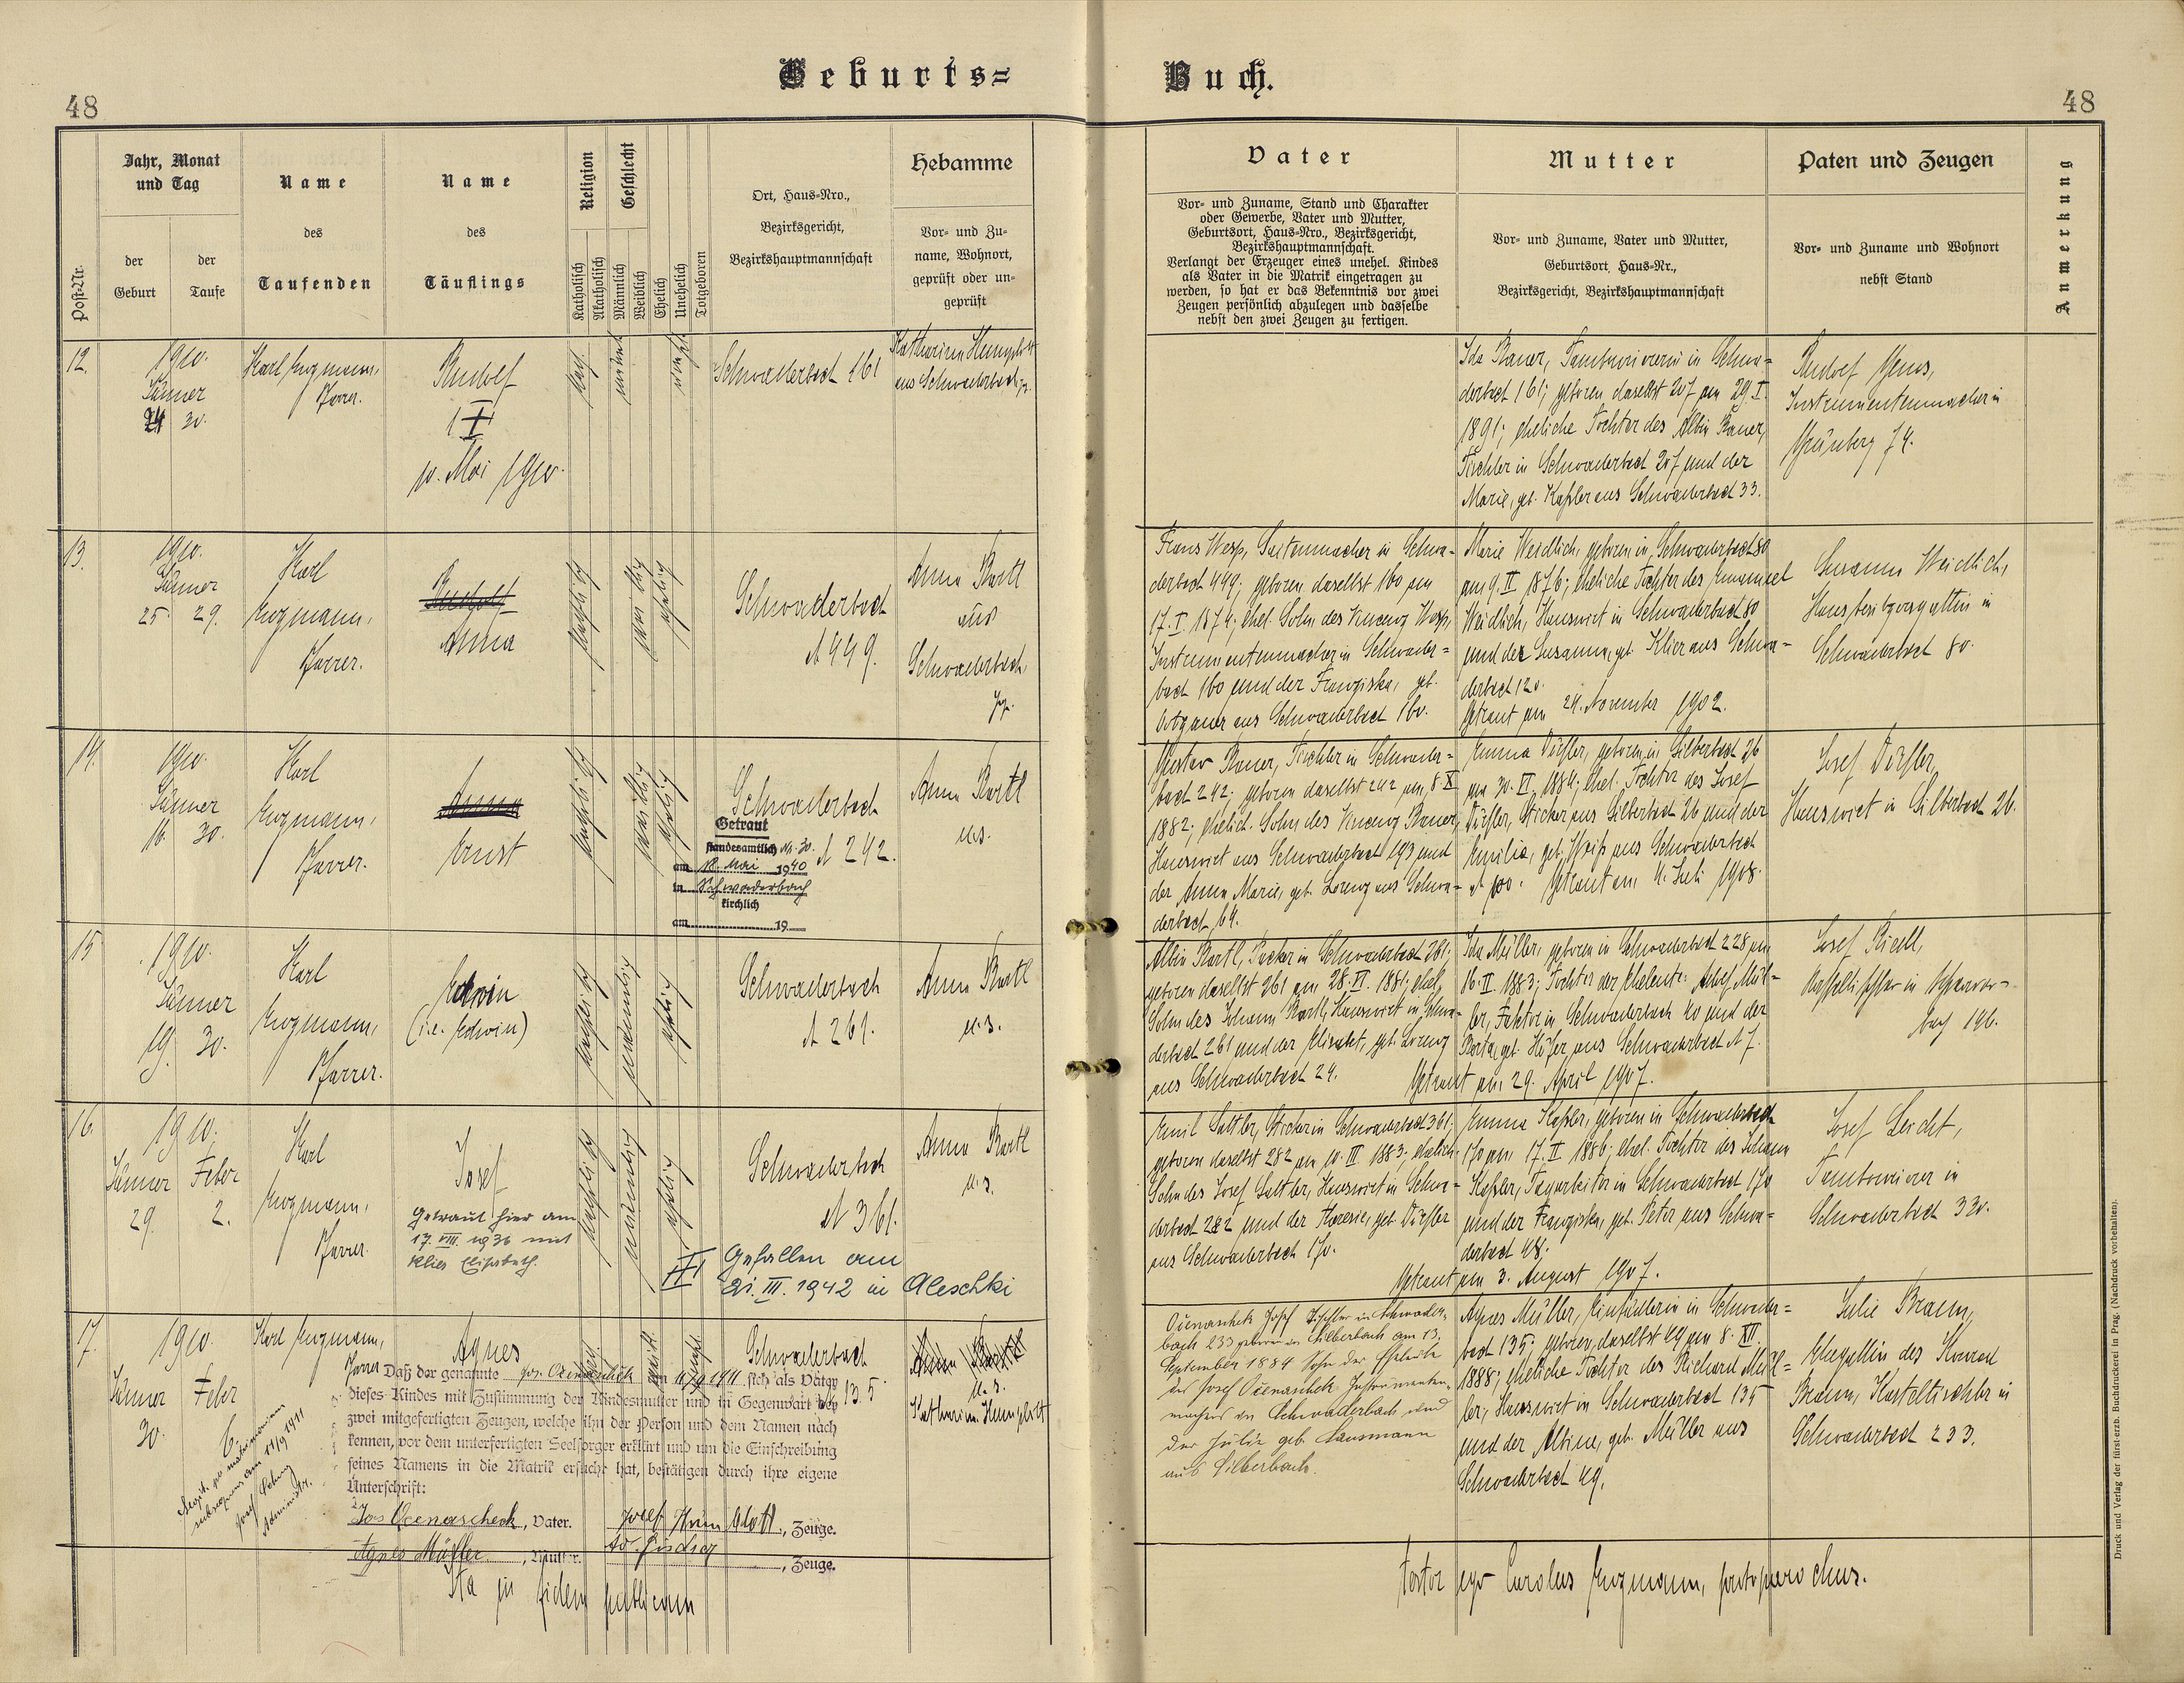 48
Geburts=
Buch.
48
Post-Nr.
Jahr, Monat
und Tag
der
Geburt
der
Taufe
Name
des
Taufenden
Name
des
Täuflings
Religion
Katholisch
Akatholisch
Geschlecht
Männlich
Weiblich
Ehelich
Unehelich
Totgeboren
Ort, Haus-Nro.,
Bezirksgericht,
Bezirkshauptmannschaft
Hebamme
Vor- und Zu-
name, Wohnort,
geprüft oder un-
geprüft
Vater
Vor- und Zuname, Stand und Charakter
oder Gewerbe, Vater und Mutter,
Geburtsort, Haus-Nro., Bezirksgericht,
Bezirkshauptmannschaft.
Verlangt der Erzeuger eines unehel. Kindes
als Vater in die Matrik eingetragen zu
werden, so hat er das Bekenntnis vor zwei
Zeugen persönlich abzulegen und dasselbe
nebst den zwei Zeugen zu fertigen.
Mutter
Vor- und Zuname, Vater und Mutter,
Geburtsort, Haus-Nr.,
Bezirksgericht, Bezirkshauptmannschaft
Paten und Zeugen
Vor- und Zuname und Wohnort
nebst Stand
Anmerkung
12.
1910.
Jänner
24 30.
Karl
Pfarrer.
Rudolf
10. Mai 1910.
Schwaderbach 161
Katharina
aus Schwaderbach
in Schwa=
derbach 161; geboren daselbst 207 am 29. I.
1891; eheliche Tochter des Albin
Tischler in Schwaderbach 207 und der
Marie, geb. Kaßler aus Schwaderbach 33.
Rudolf
Instrumentenmacher in
Grünberg 74.
13.
1910.
Jänner
25. 29.
Karl
Pfarrer.
Rudolf
Anna
Schwaderbach
N 449.
Anna Bartl
aus
Schwaderbach
Saitenmacher in Schwa=
derbach 449; geboren daselbst 160 am
17. I. 1874; ehel. Sohn des Vincenz
Instrumentenmacher in Schwader=
bach 160 und der Franziska, geb.
aus Schwaderbach 160.
Marie Weidlich, geboren in Schwaderbach 80
am 9. II 1876; eheliche Tochter des Emanuel
Weidlich, Hauswirt in Schwaderbach 80
und der Susanna, geb. Klier aus Schwa=
derbach 120.
Getraut am 24. November 1902.
Susanna Weidlich,
Hausbesitzersgattin in
Schwaderbach 80.
14.
1910.
Jänner
16. 30.
Karl
Pfarrer.
Anna
Ernst
Schwaderbach
N 242.
Getraut
standesamtlich Nr. 30.
am 18. Mai 1940
in Schwaderbach
kirchlich
am 19
Anna Bartl
u.s.
Gustav
Tischler in Schwader=
bach 242; geboren daselbst 242 am 8. X
1882; ehelich. Sohn des Vincenz
Hauswirt aus Schwaderbach 193 und
der Anna Marie, geb. Lorenz aus Schwa=
derbach 64.
Emma Dörfler, geboren in Silberbach 26
am 30. VI. 1884; ehel. Tochter des Josef
Dörfler, Sticker aus Silberbach 26 und der
Emilie, geb.
aus Schwaderbach
Getraut am 4. Juli 1908.
Josef Dörfler,
Hauswirt in Silberbach 26.
15
1910.
Jänner
19. 30.
Karl
Pfarrer.
Edwin
(i.e. Edwin)
Schwaderbach
N 261.
Anna Bartl
u.s.
Albin Bartl,
in Schwaderbach 261;
geboren daselbst 261 am 28. VI. 1881; ehel.
Sohn des Johann Bartl, Hauswirt in Schwa=
derbach 261 und der Elisabet, geb. Lorenz
aus Schwaderbach 24.
Ida Müller, geboren in Schwaderbach 228 am
16. II. 1883; Tochter der Eheleute: Adolf Mül=
ler, Faktor in Schwaderbach 40 und der
Berta, geb. Höfer aus Schwaderbach N 7.
Getraut am 29. April 1907.
Josef Riedl,
in Schwader=
bach 196.
16.
1910.
Jänner Feber
29. 2.
Karl
Pfarrer.
Josef
Getraut hier am
17. VIII. 1936 mit
Klier Elisabeth.
Schwaderbach
N 361.
Gefallen am
21. III. 1942 in Aleschki
Anna Bartl
u.s.
Emil Sattler, Sticker in Schwaderbach 361;
geboren daselbst 282 am 10. III 1883; ehelich.
Sohn des Josef Sattler, Hauswirt in Schwa=
derbach 282 und der Theresia, geb. Dörfler
aus Schwaderbach 170.
Emma Kaßler, geboren in Schwaderbach
170 am 17. II 1886; ehel. Tochter des Johann
Kaßler, Tagarbeiter in Schwaderbach 170
und der Franziska, geb. Peter aus Schwa=
derbach 48.
Getraut am 3. August 1907.
Josef Leicht,
Tambourierer in
Schwaderbach 330.
17.
1910.
Jänner Feber
30. 6.
Karl
Pfarrer
Agnes
Schwaderbach
N 135.
Anna Bartl
u.s.
Katharina
Daß der genannte Jos. Ocenaschek am 11/9 1911 sich als Vater
dieses Kindes mit Zustimmung der Kindesmutter und in Gegenwart der
zwei mitgefertigten Zeugen, welche ihn der Person und dem Namen nach
kennen, vor dem unterfertigten Seelsorger erklärt und um die Einschreibung
seines Namens in die Matrik ersucht hat, bestätigen durch ihre eigene
Unterschrift:
Jos Ocenascheck, Vater.
Josef, Zeuge.
Agnes Müller, Mutter.
Ad. Fischer, Zeuge.
Legit. per matrimonium
subsequens am 11/9 1911
Josef
Administr.
Ocenaschek Josef Tischler in Schwader-
bach 233 geboren in Silberbach am 13.
September 1884 Sohn der Eheleute
des Josef Ocenaschek Instrumenten-
machers in Schwaderbach und
der Julie geb.
aus Silberbach.
Agnes Müller,
in Schwader=
bach 135; geboren daselbst 49 am 8. XII.
1888; eheliche Tochter des Richard Mül=
ler, Hauswirt in Schwaderbach 135
und der Albine, geb. Müller aus
Schwaderbach 49.
Julie Braun,
Ehegattin des Konrad
Braun, Kastltischler in
Schwaderbach 233.
Ita in fidem publicam
testor ego Carolus
protoparochus.
Druck und Verlag der fürst-erzb. Buchdruckerei in Prag. (Nachdruck vorbehalten).